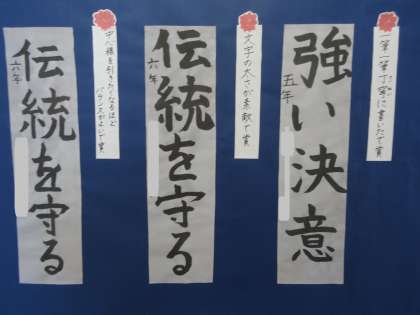 一筆一筆丁寧に書いたで賞
強い決意
五年
文字の太さが素敵で賞
伝統を守る
六年
中心線を引きたくなるほど
バランスがよいで賞
伝統を守る
六年